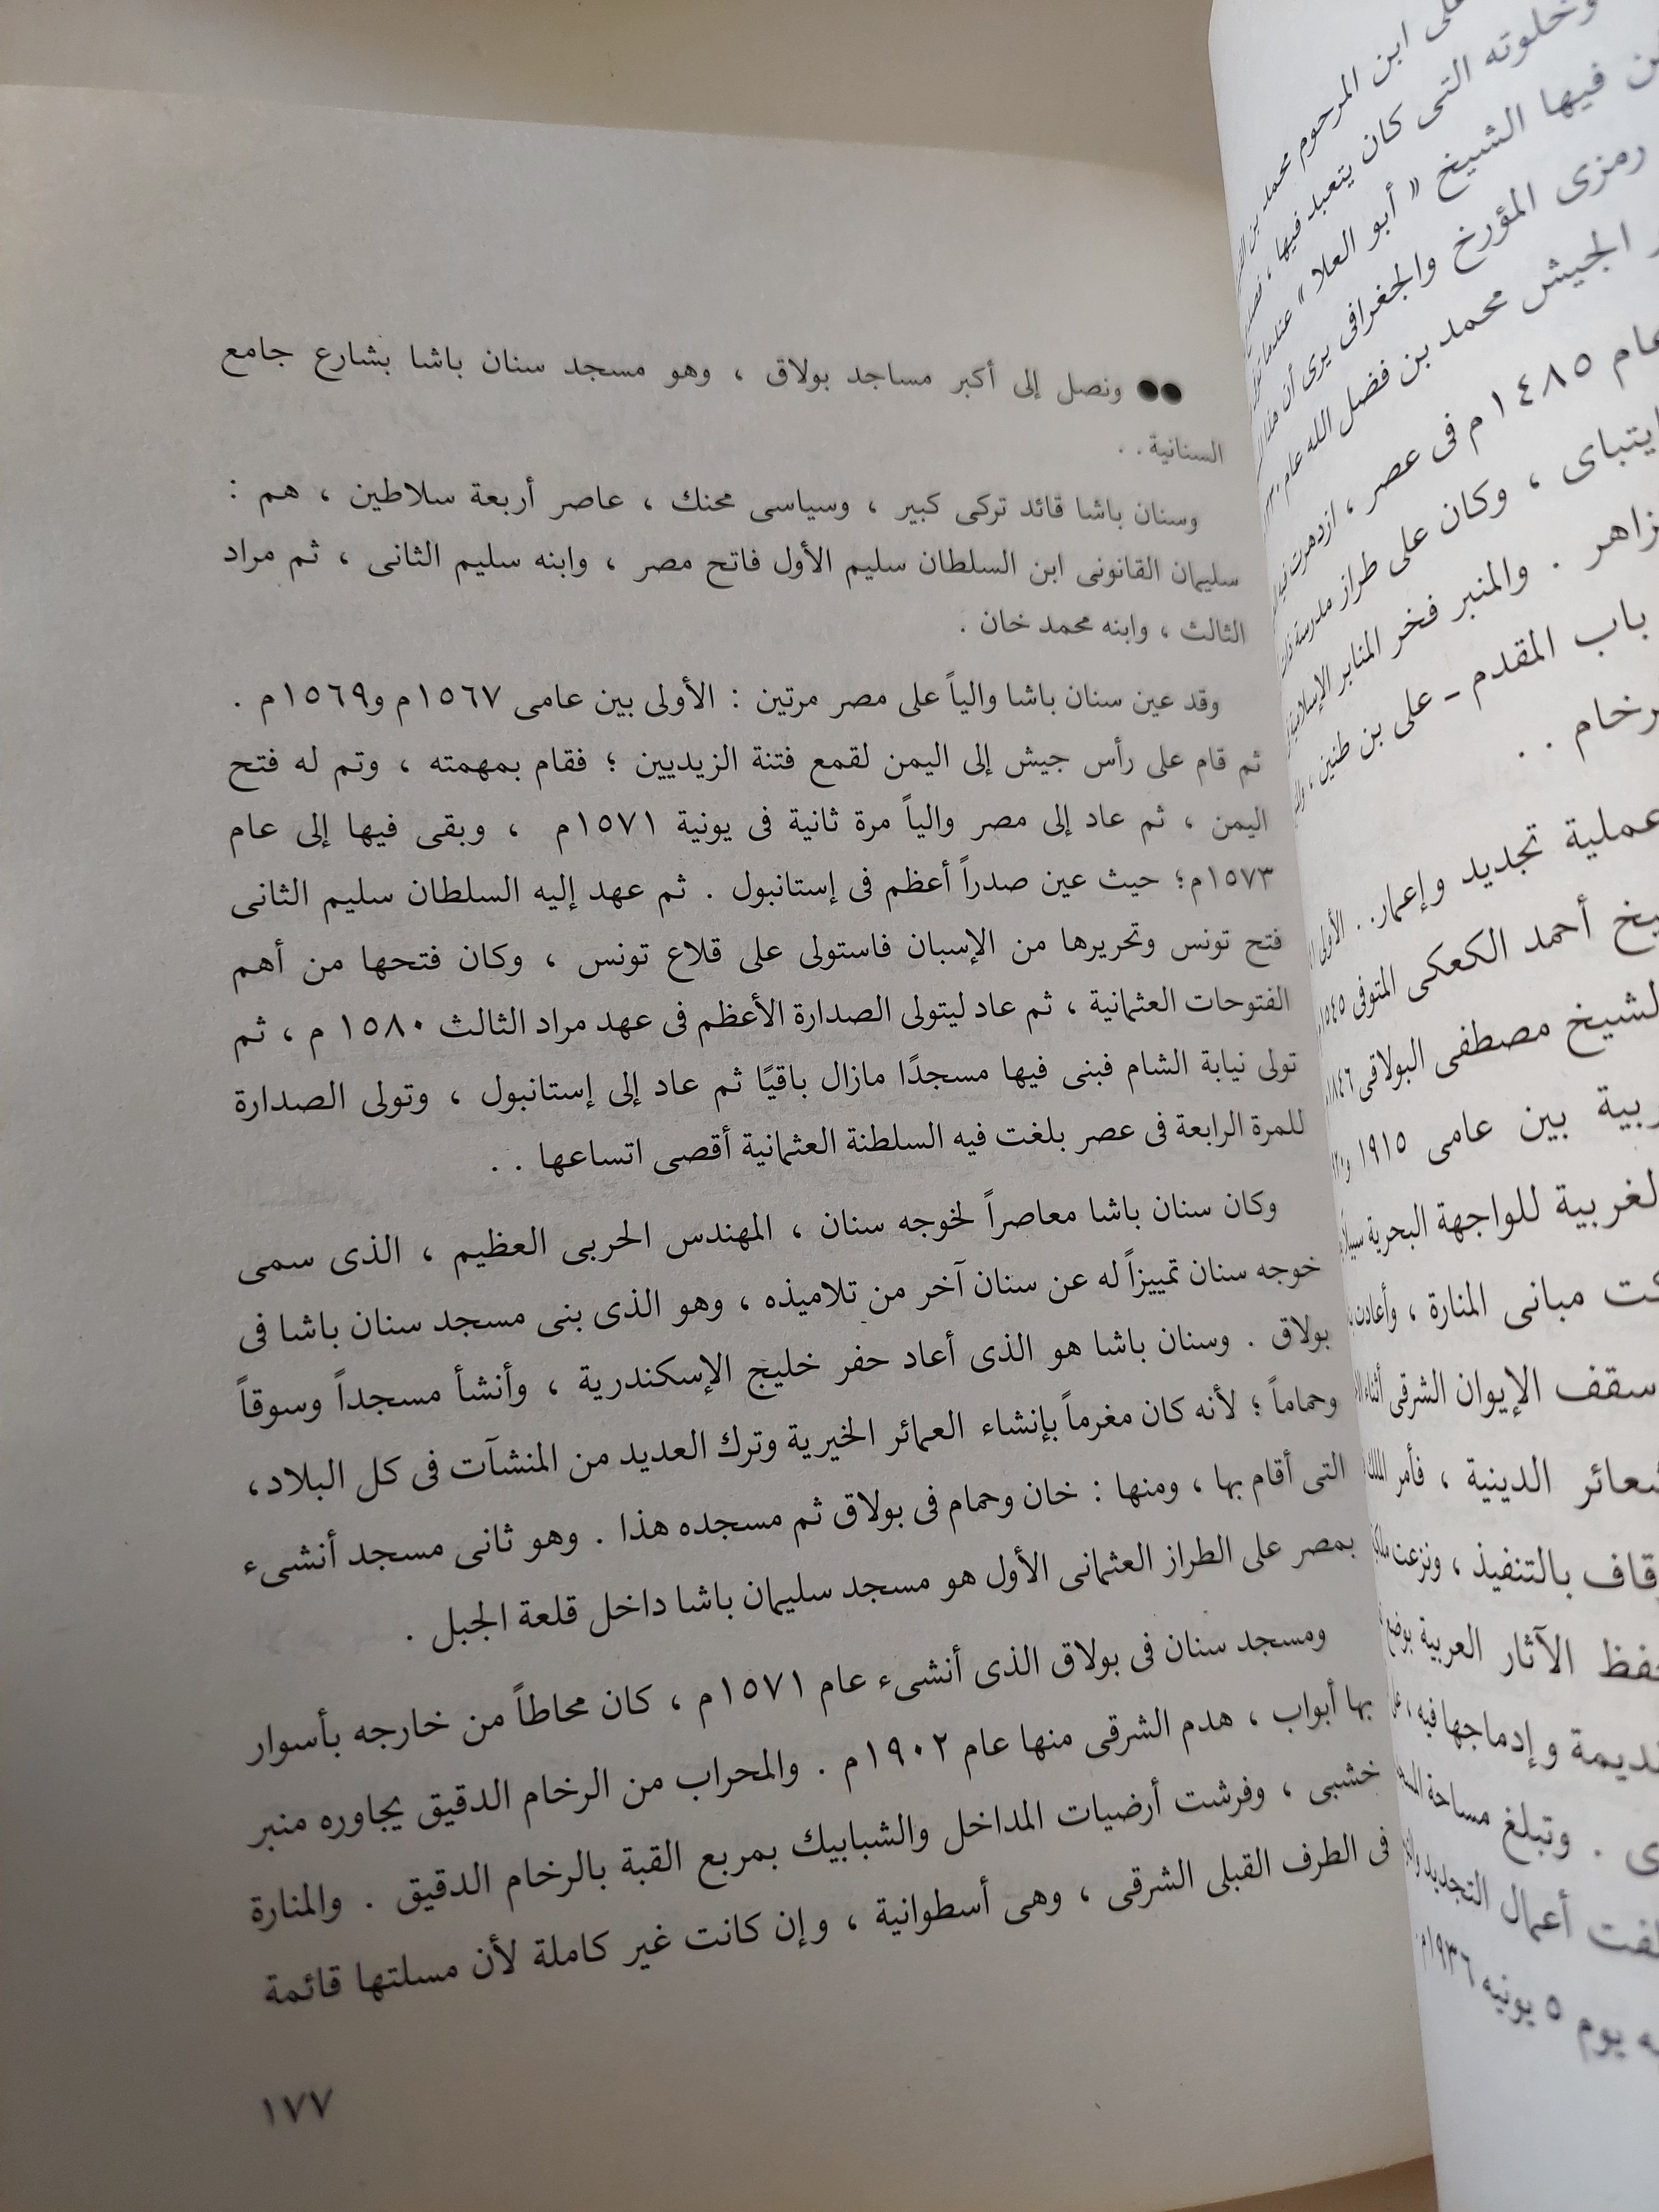 ●● ونصل إلى أكبر مساجد بولاق ، وهو مسجد سنان باشا بشارع جامع
السنانية . .
وسنان باشا قائد تركى كبير ، وسياسى محنك ، عاصر أربعة سلاطين ، هم :
سليمان القانونى ابن السلطان سليم الأول فاتح مصر ، وابنه سليم الثانى ، ثم مراد
الثالث ، وابنه محمد خان .
وقد عين سنان باشا والياً على مصر مرتين : الأولى بين عامى ١٥٦٧م و١٥٦٩م .
ثم قام على رأس جيش إلى اليمن لقمع فتنة الزيديين ؛ فقام بمهمته ، وتم له فتح
اليمن ، ثم عاد إلى مصر والياً مرة ثانية فى يونية ١٥٧١م ، وبقى فيها إلى عام
١٥٧٣م؛ حيث عين صدراً أعظم فى إستانبول . ثم عهد إليه السلطان سليم الثانى
فتح تونس وتحريرها من الإسبان فاستولى على قلاع تونس ، وكان فتحها من أهم
الفتوحات العثمانية ، ثم عاد ليتولى الصدارة الأعظم فى عهد مراد الثالث ١٥٨٠ م ، ثم
تولى نيابة الشام فبنى فيها مسجدًا مازال باقيًا ثم عاد إلى إستانبول ، وتولى الصدارة
للمرة الرابعة فى عصر بلغت فيه السلطنة العثمانية أقصى اتساعها . .
وكان سنان باشا معاصراً لخوجه سنان ، المهندس الحربى العظيم ، الذى سمى
خوجه سنان تمييزاً له عن سنان آخر من تلاميذه ، وهو الذى بنى مسجد سنان باشا فى
بولاق . وسنان باشا هو الذى أعاد حفر خليج الإسكندرية ، وأنشأ مسجداً وسوقاً
وحماماً ؛ لأنه كان مغرماً بإنشاء العمائر الخيرية وترك العديد من المنشآت فى كل البلاد،
التى أقام بها ، ومنها : خان وحمام فى بولاق ثم مسجده هذا . وهو ثانى مسجد أنشىء
بمصر على الطراز العثمانى الأول هو مسجد سليمان باشا داخل قلعة الجبل .
ومسجد سنان فى بولاق الذى أنشىء عام ١٥٧١م ، كان محاطاً من خارجه بأسوار
بها أبواب ، هدم الشرقى منها عام ١٩٠٢م . والمحراب من الرخام الدقيق يجاوره منبر
خشبى ، وفرشت أرضيات المداخل والشبابيك بمربع القبة بالرخام الدقيق . والمنارة
فى الطرف القبلى الشرقى ، وهى أسطوانية ، وإن كانت غير كاملة لأن مسلتها قائمة
١٧٧
ابن المرحوم محمد
وخلوته التى كان يتعبد فيها ،
فيها الشيخ « أبو العلا » عندما
رمزى المؤرخ والجغرافى يرى أن
الجيش محمد بن فضل الله عام
عام ١٤٨٥م فى عصر ، ازدهرت
، وكان على طراز مدرسة
. والمنبر فخر المنابر الإسلامية
باب المقدم - على بن طنين ،
. .
عملية تجديد وإعمار. . الأولى
أحمد الكعكى المتوفى
الشيخ مصطفى البولاقى
بين عامى ١٩١٥
الغربية للواجهة البحرية
مبانى المنارة ،
سقف الإيوان الشرقى أثناء
الدينية ، فأمر الملك
بالتنفيذ ، ونزعت
الآثار العربية بوضع
وإدماجها فيه ،
. وتبلغ مساحة
أعمال التجديد
يوم ٥ يونيه ١٩٣٦م